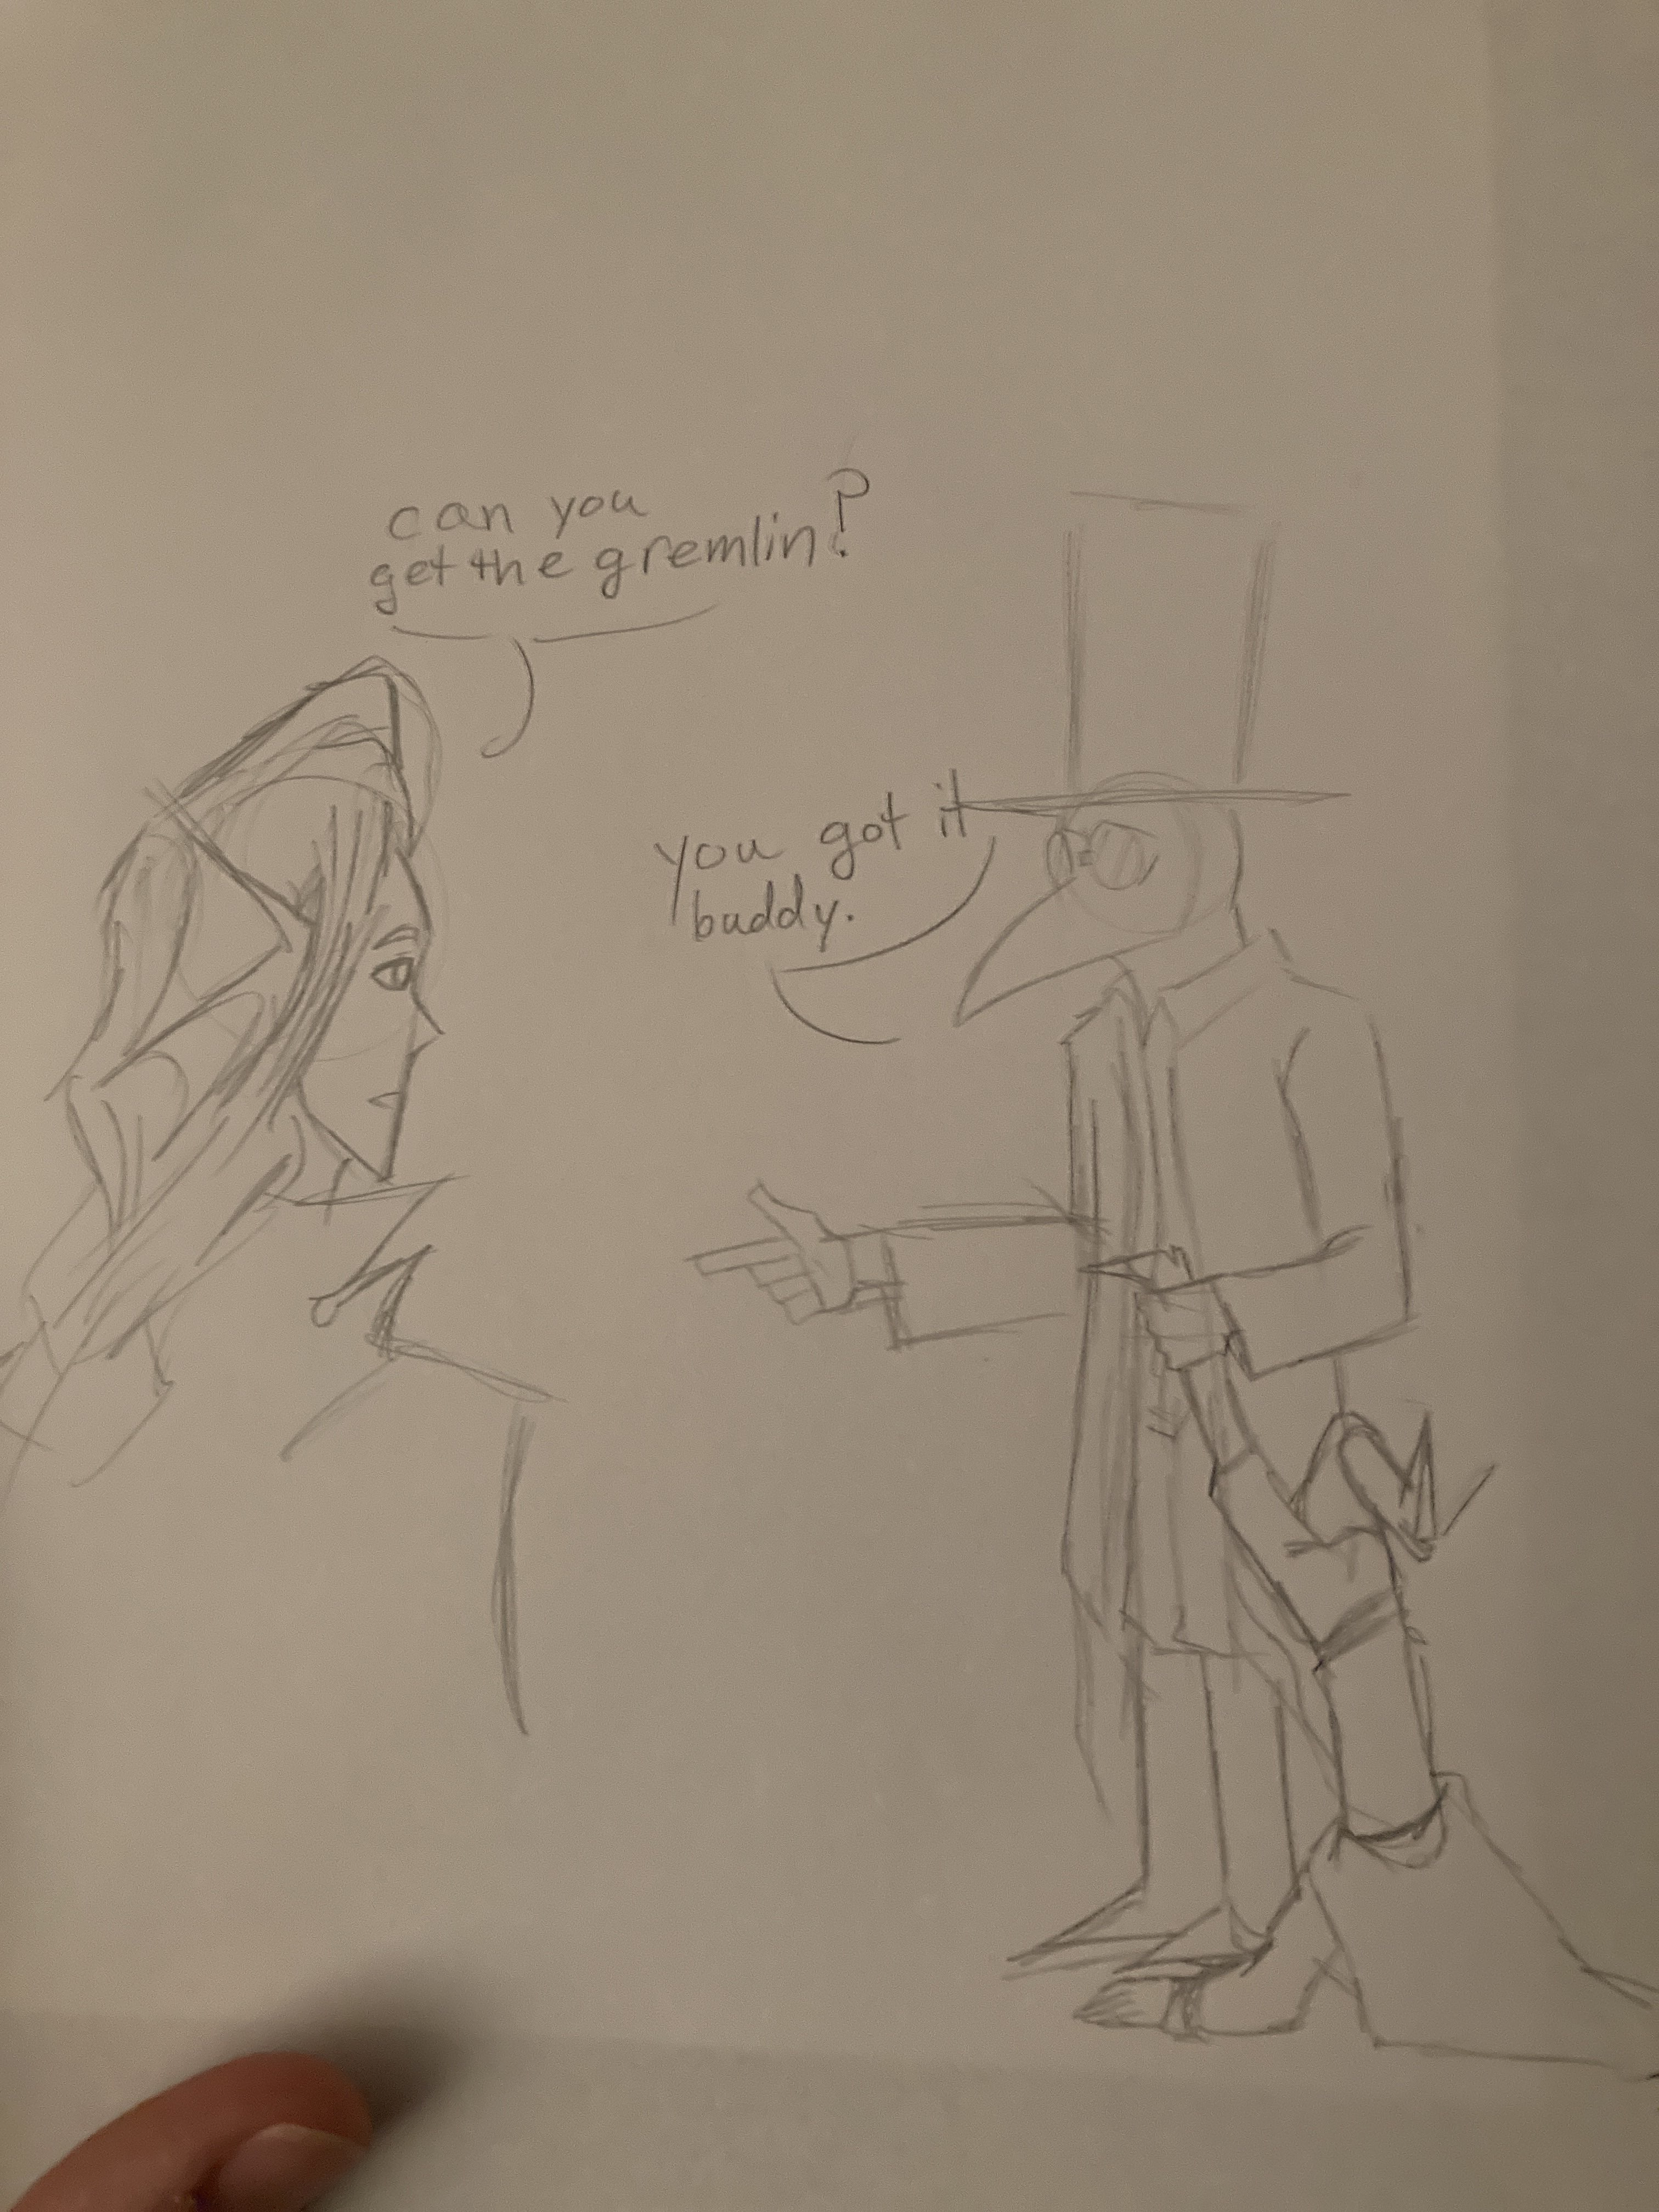 can you
get the gremlin?
you got it
buddy.